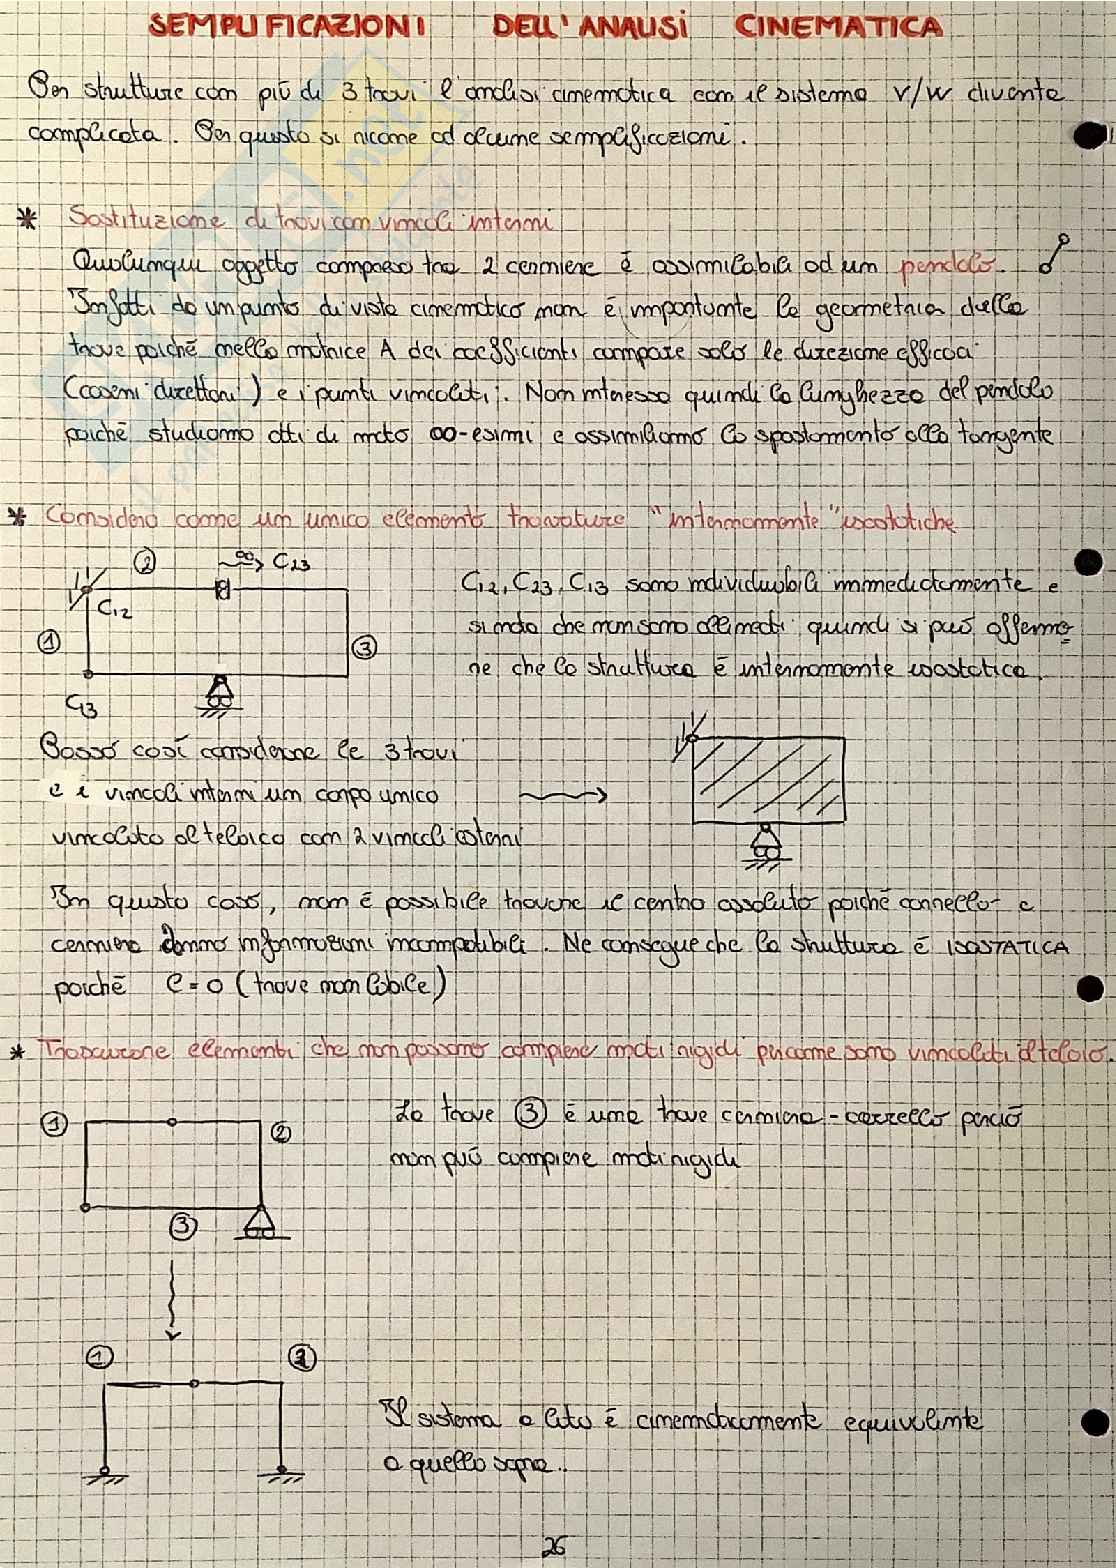 SEMPLIFICAZIONI DELL'ANALISI CINEMATICA
Per strutture con più di 3 travi l'analisi cinematica con il sistema v/w diventa
complicata. Per questo si ricorre ad alcune semplificazioni.
* Sostituzione di travi con vincoli interni
Qualunque oggetto compreso tra 2 cerniere è assimilabile ad un pendolo.
Infatti da un punto di vista cinematico non è importante la geometria della
trave poiché nella matrice A dei coefficienti compare solo la direzione efficace
(coseni direttori) e i punti vincolati. Non interessa quindi la lunghezza del pendolo
poiché studiamo atti di moto ∞-esimi e assimiliamo lo spostamento alla tangente
* Considero come un unico elemento travature "internamente" isostatiche
2
∞ C23
C12
1
3
C13
C12, C23, C13 sono individuabili immediatamente e
si nota che non sono allineati quindi si può afferma=
re che la struttura è internamente isostatica.
Posso così considerare le 3 travi
e i vincoli interni un corpo unico
vincolato al telaio con 2 vincoli esterni
In questo caso, non è possibile trovare il centro assoluto poiché carrello e
cerniera danno informazioni incompatibili. Ne consegue che la struttura è ISOSTATICA
poiché l=0 (trave non labile)
* Trascurare elementi che non possono compiere moti rigidi perché sono vincolati al telaio.
1
2
3
La trave 3 è una trave cerniera-carrello perciò
non può compiere moti rigidi
1
2
Il sistema a lato è cinematicamente equivalente
a quello sopra.
26